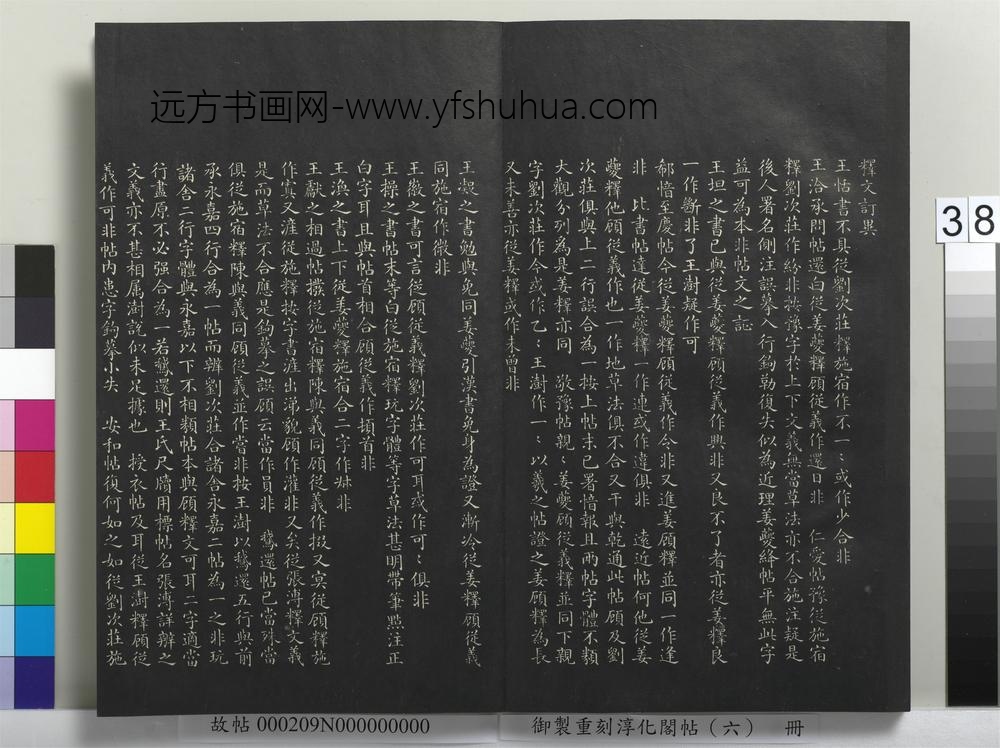 远方书画网-www.yfshuhua.com
釋文訂異
王恬書不具從劉次莊釋施宿作不一〻或作少合非
王洽承問帖還白從姜夔釋顧從義作還日非 仁愛帖豫從施宿
釋劉次莊作紛非按豫字於上下文義無當草法亦不合施注疑是
後人署名側注誤摹入行鉤勒復失似為近理姜夔絳帖平無此字
益可為本非帖文之証
王坦之書已與從姜夔釋顧從義作興非又良不了者亦從姜釋良
一作斷非了王澍疑作可
郗愔至慶帖今從姜夔釋顧從義作令非又進姜顧釋並同一作逢
非 比書帖達從姜夔釋一作連或作違俱非 遠近帖何他從姜
夔釋他顧從義作也一作地草法俱不合又干與乾通此帖顧及劉
次莊俱與上二行誤合為一按上帖末已署愔報且兩帖字體不類
大觀分列為是姜釋亦同 敬豫帖親 姜夔顧從義釋並同下親
字劉次莊作今或作乙〻王澍作一〻以羲之帖證之姜顧釋為長
又未善亦從姜釋或作未曾非
王凝之書勉與免同姜夔引漢書免身為證又漸冷從姜釋顧從義
同施宿作微非
王徽之書可言從顧從義釋劉次莊作可耳或作可〻俱非
王操之書帖末等白從施宿釋玩字體等字草法甚明帶筆點注正
白字耳且與帖首相合顧從義作頓首非
王渙之書上下從姜夔釋施宿合二字作姊非
王獻之相過帖撥從施宿釋陳與義同顧從義作掇又冥從顧釋施
作寘又涯從施釋按字書涯出涕貌顧作灌非又矣從張溥釋文義
是而草法不合應是鉤摹之誤顧云當作員非 鵞還帖已當殊當
俱從施宿釋陳與義同顧從義並作嘗非按王澍以鵞還五行與前
承永嘉四行合為一帖而辯劉次莊合諸舍永嘉二帖為一之非玩
諸舍二行字體與永嘉以下不相類帖本與顧釋文可耳二字適當
行盡原不必強合為一若鵞還則王氏尺牘用標帖名張溥詳辯之
文義亦不甚相屬澍說似未足據也 授衣帖及耳從王澍釋顧從
義作可非帖內患字鉤摹小失 安和帖復何如之如從劉次莊施
38
故帖 000209N000000000
御製重刻淳化閣帖（六） 冊